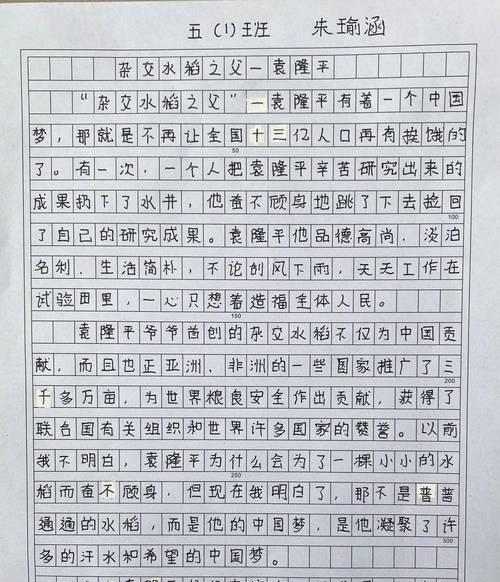 五（1）班 朱瑜涵
杂交水稻之父一袁隆平
“杂交水稻之父”一袁隆平有着一个中国
梦，那就是不再让全国十三亿人口再有挨饿的
了。有一次，一个人把袁隆平辛苦研究出来的
成果扔下了水井，他奋不顾身地跳了下去捡回
了自己的研究成果。袁隆平他品德高尚，淡泊
名利、生活简朴，不论刮风下雨，天天工作在
试验田里，一心只想着造福全体人民。
袁隆平爷爷首创的杂交水稻不仅为中国贡
献，而且也正亚洲、非洲的一些国家推广了三
千多万亩，为世界粮食安全作出贡献，获得了
联合国有关组织和世界许多国家的赞誉。以前
我不明白，袁隆平为什么会为了一棵小小的水
稻而奋不顾身，但现在我明白了，那不是普普
通通的水稻，而是他的中国梦，是他凝聚了许
多的汗水和希望的中国梦。
50
100
150
200
250
300